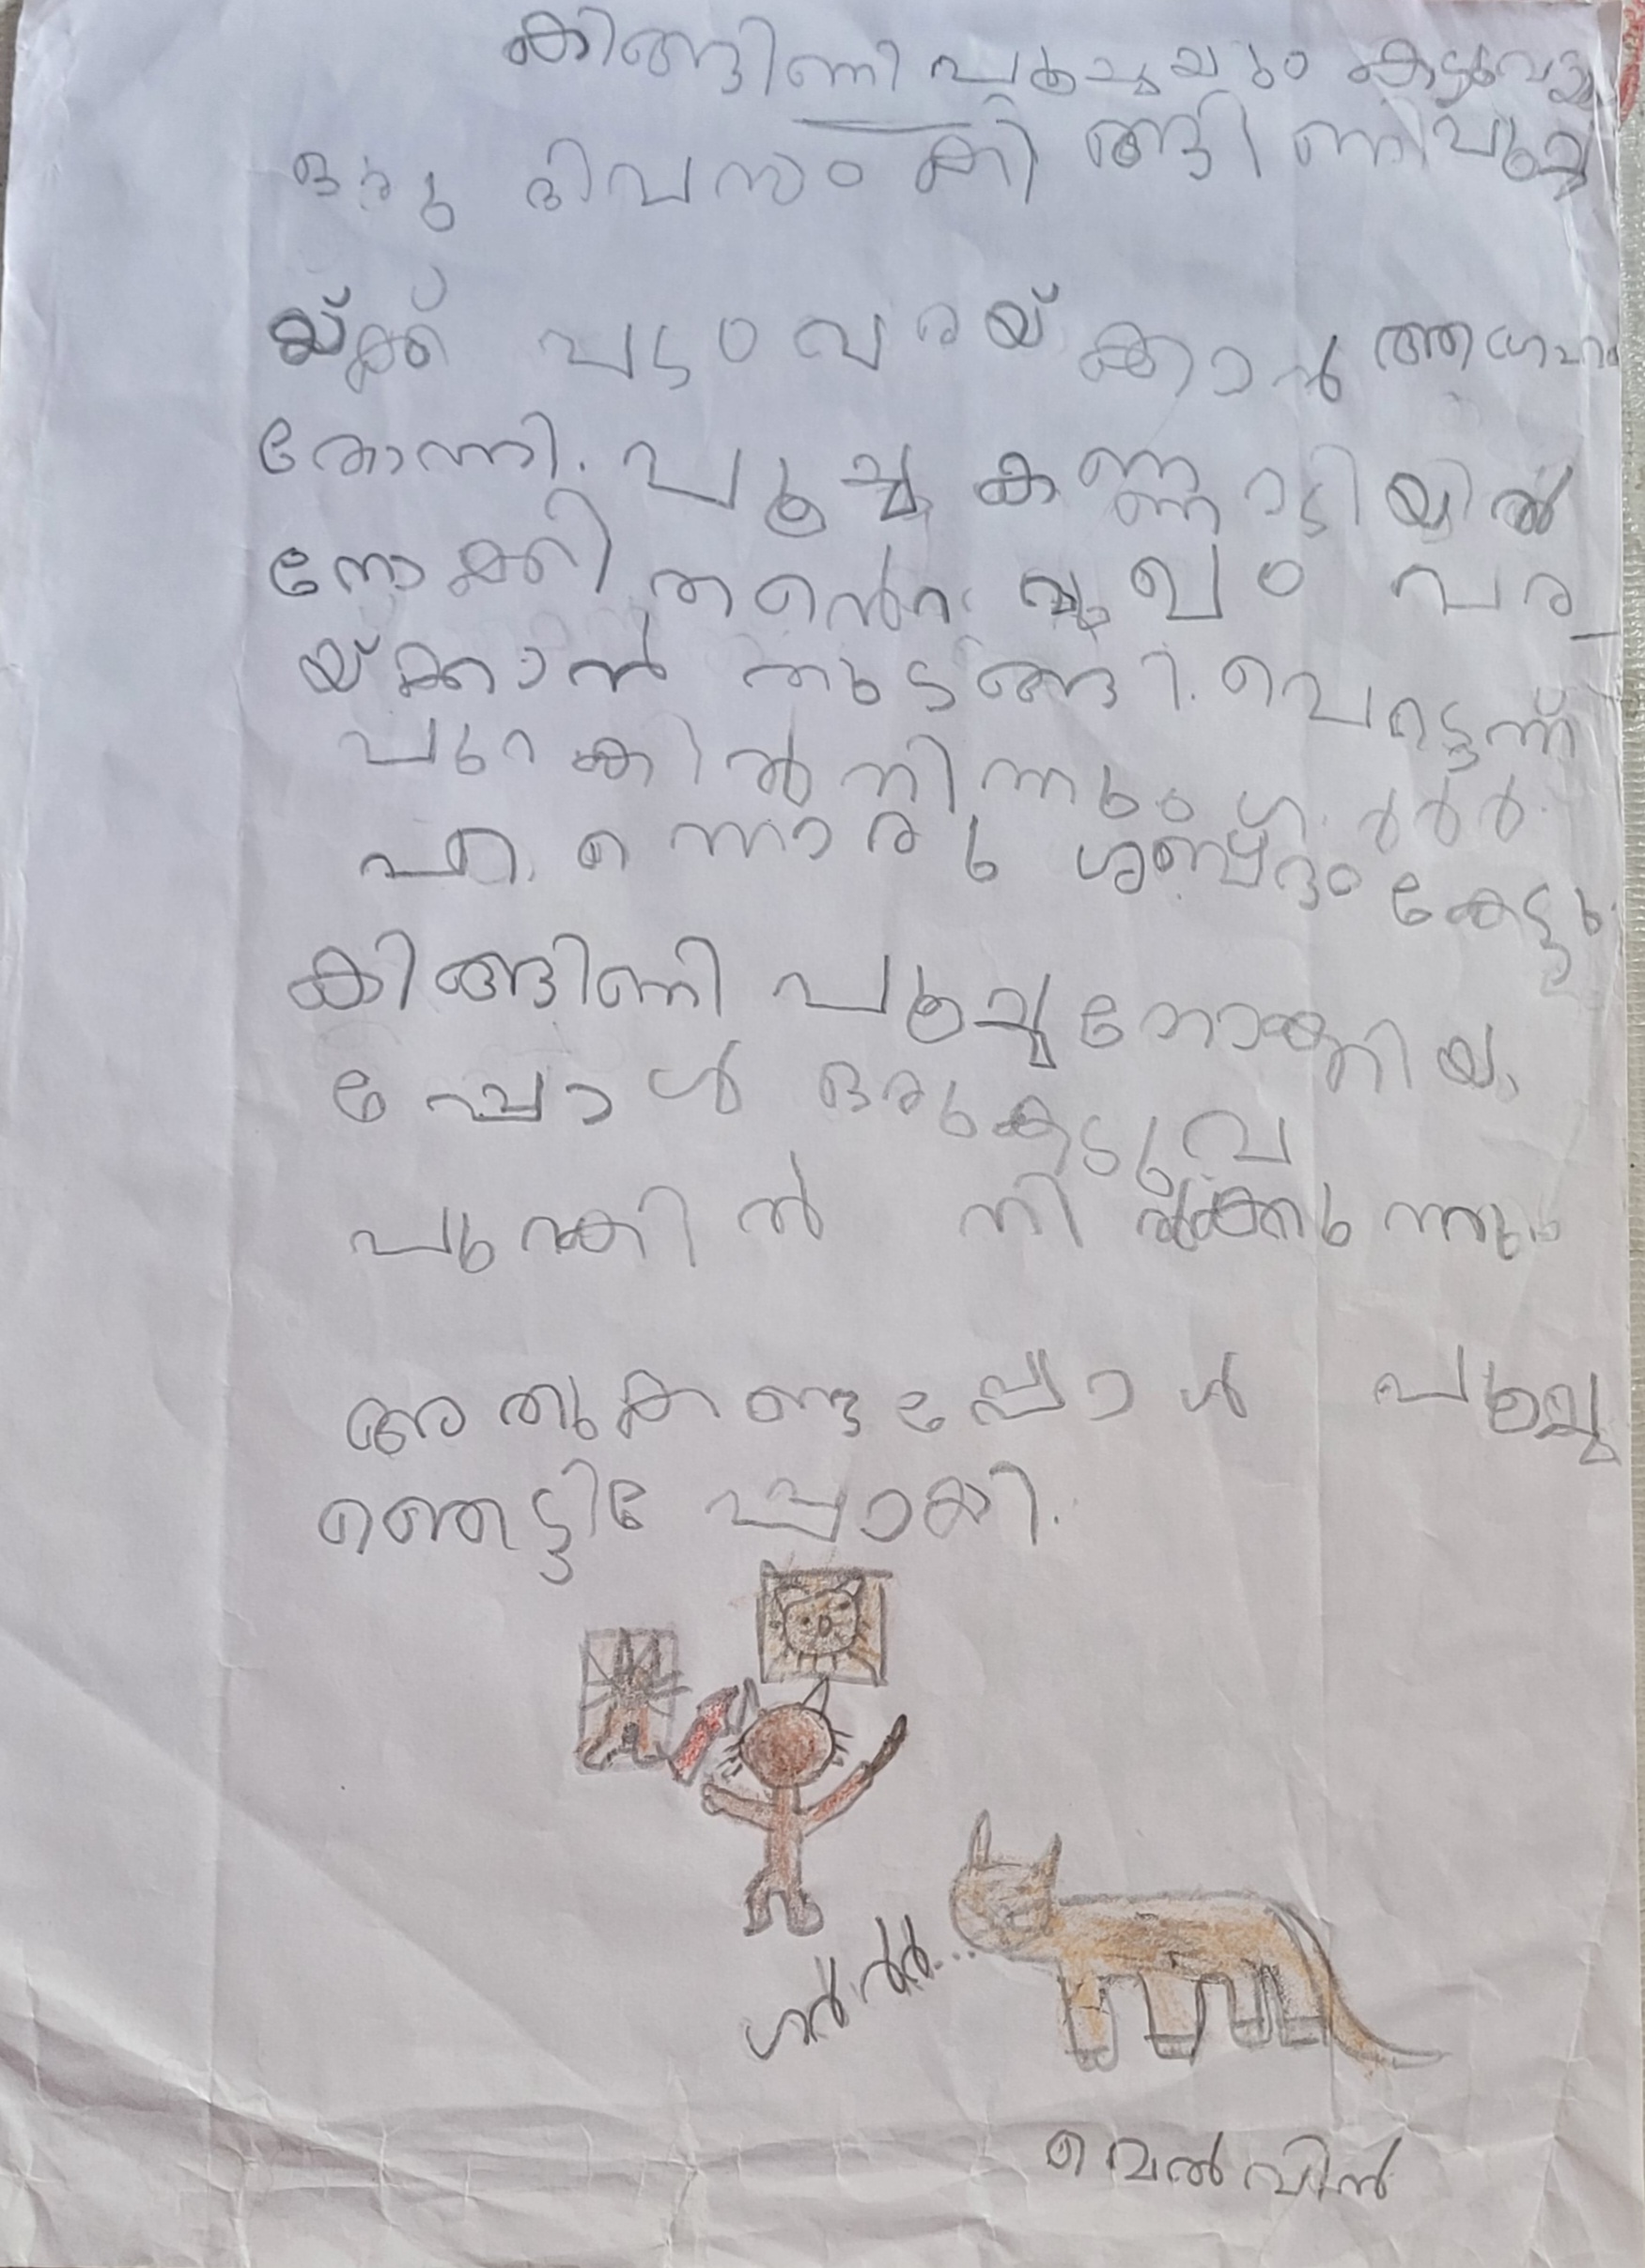 കിങ്ങിണി പൂച്ചയും കടുവയും
ഒരു ദിവസം കിങ്ങിണിപൂച്ച
യ്ക്ക് പടം വരയ്ക്കാൻ ആഗ്രഹം
തോന്നി. പൂച്ച കണ്ണാടിയിൽ
നോക്കി തന്റെ മുഖം വര
യ്ക്കാൻ തുടങ്ങി. പെട്ടെന്ന്
പുറകിൽ നിന്നും ഗർർർ
എന്നൊരു ശബ്ദം കേട്ടു.
കിങ്ങിണി പൂച്ച നോക്കിയ
പ്പോൾ ഒരു കടുവ
പുറകിൽ നിൽക്കുന്നു.
അതുകണ്ടപ്പോൾ പൂച്ച
ഞെട്ടിപ്പോയി.
ഗർർർർ...
വെൽവിൻ